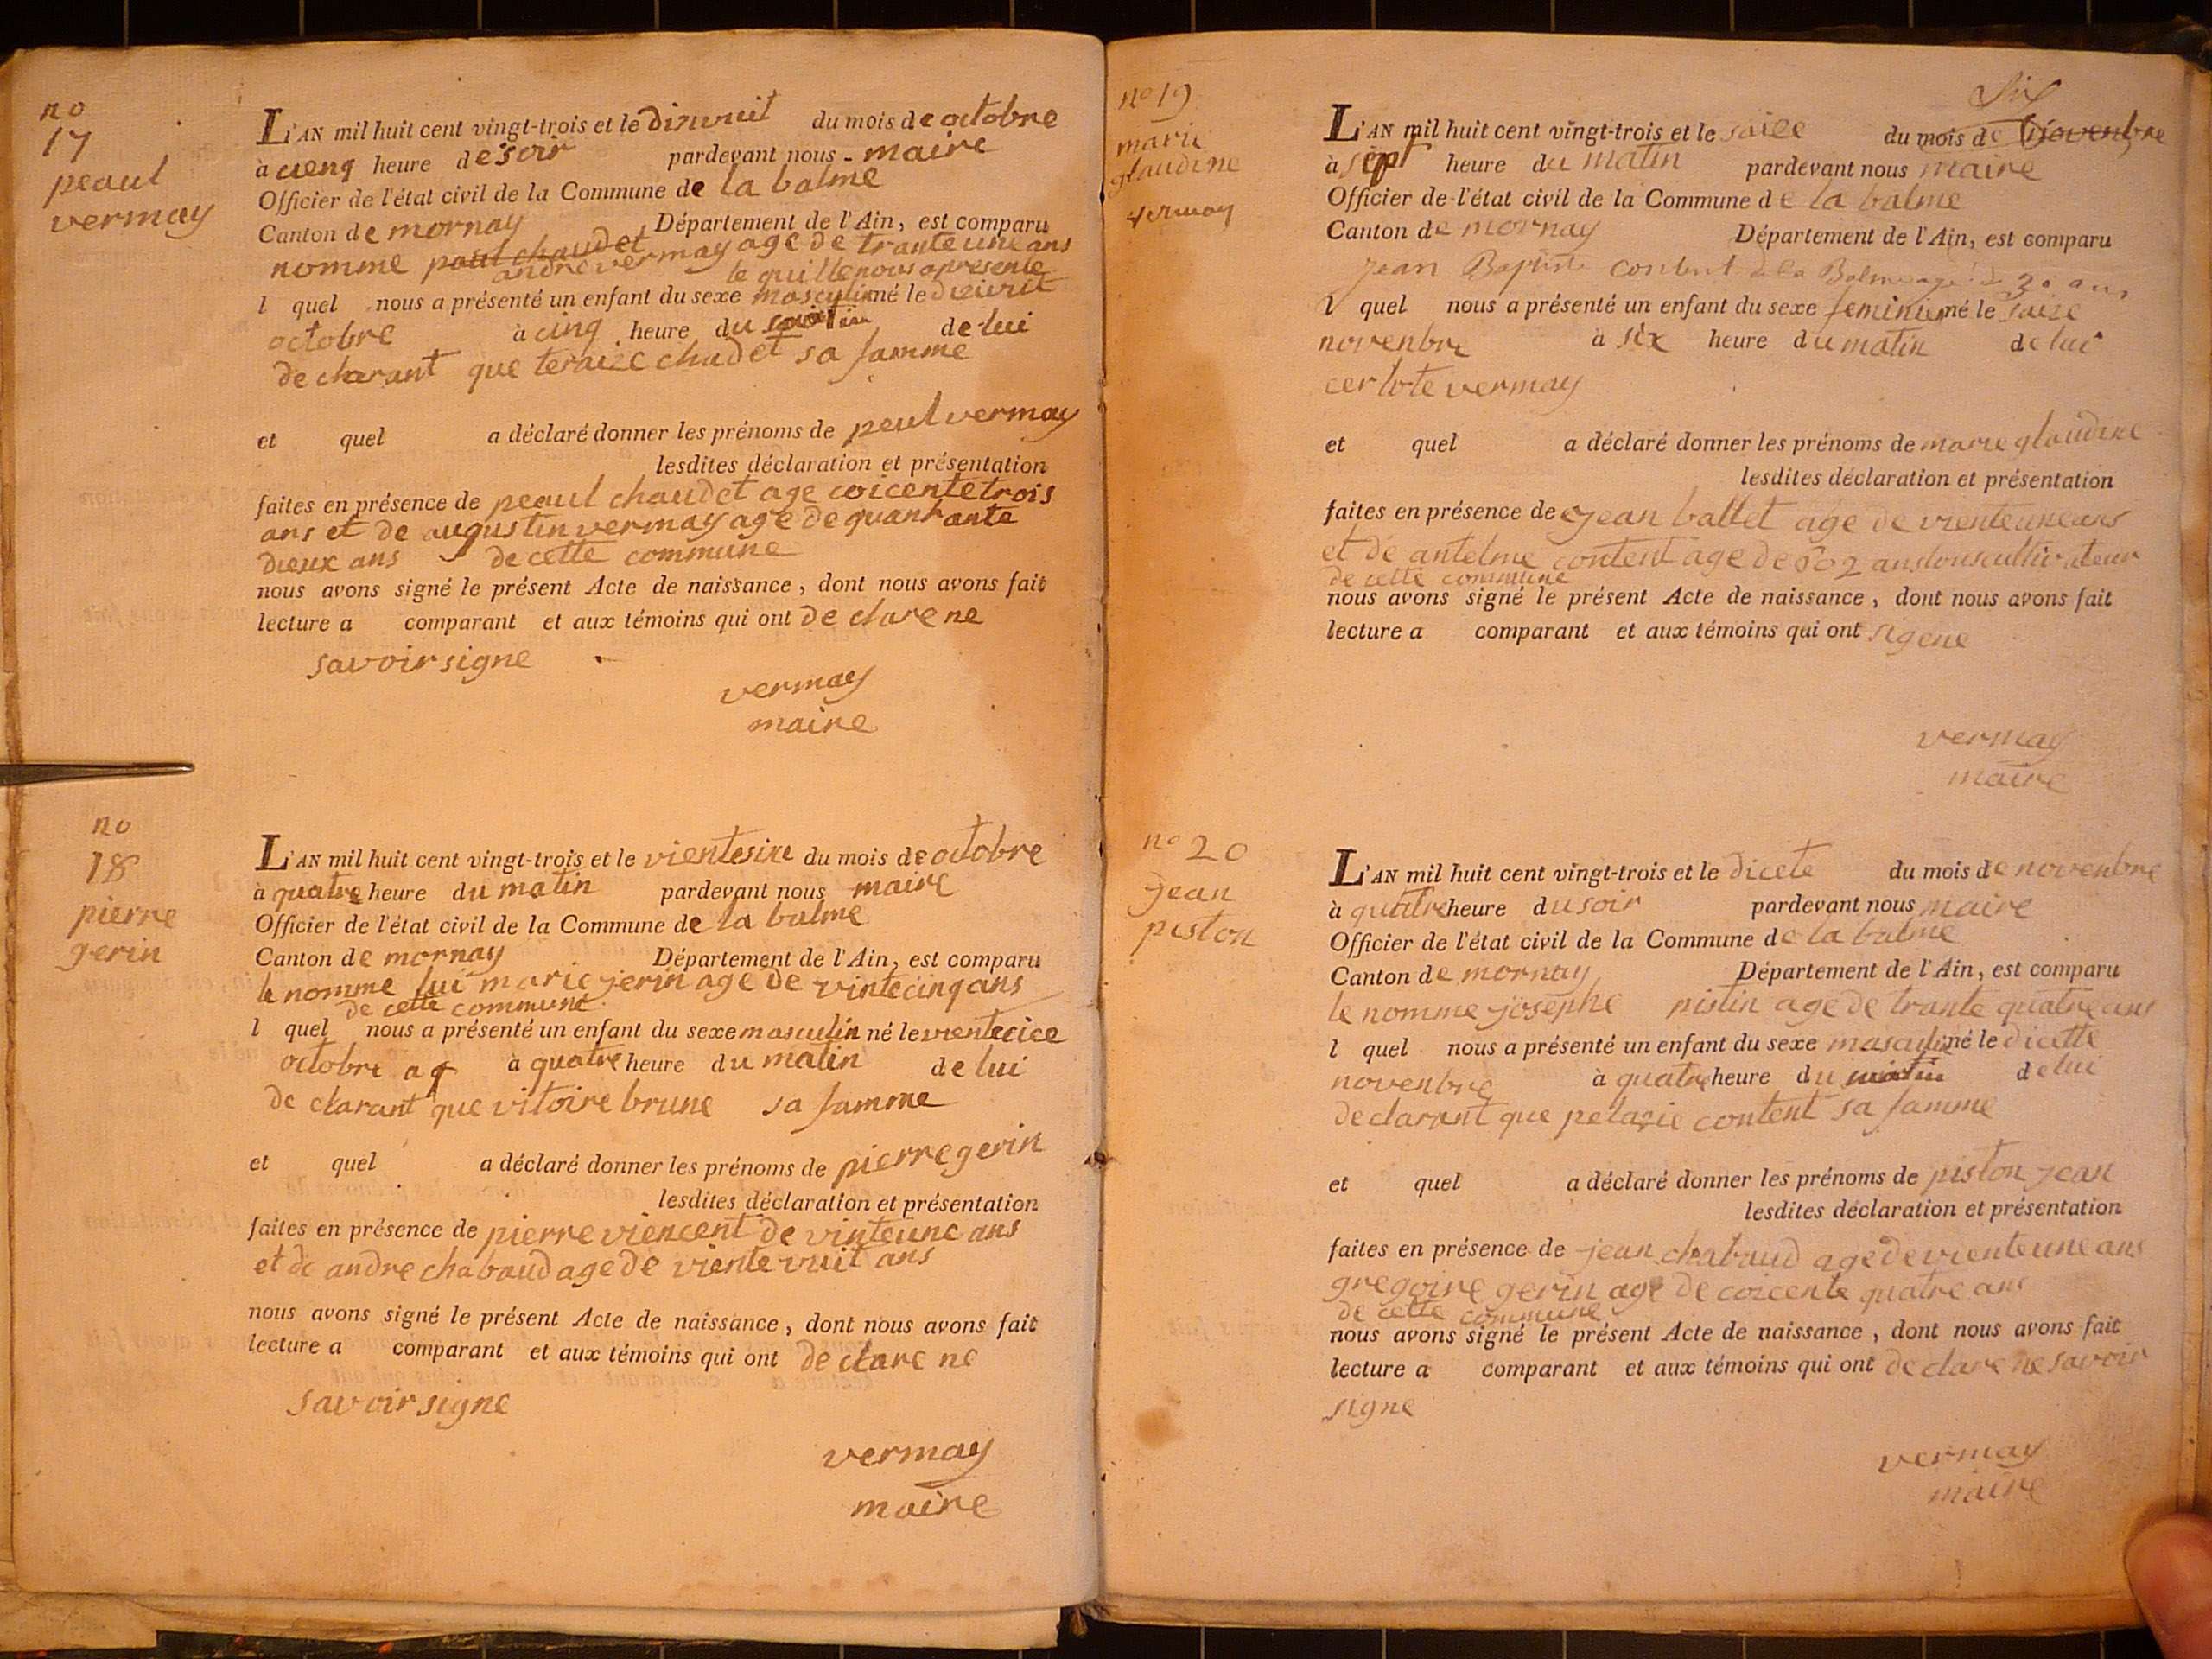 no
17
peaul
vermay
L'AN mil huit cent vingt-trois et le dixuuit du mois de octobre
à cienq heure de soir pardevant nous - maire
Officier de l'état civil de la Commune de la balme
Canton de mornay Département de l'Ain, est comparu
nomme paul chaudet age de trante une ans
andre vermay le quille nous a presente
l quel nous a présenté un enfant du sexe masculin né le
octobre à cinq heure du de lui
de clarant que teraize chudet sa famme
et quel a déclaré donner les prénoms de peul vermay
lesdites déclaration et présentation
faites en présence de peaul chaudet age coicente trois
ans et de augustin vermay age de quanrante
dieux ans de cette commune
nous avons signé le présent Acte de naissance, dont nous avons fait
lecture a comparant et aux témoins qui ont de clare ne
savoir signe
vermay
maire
no
18
pierre
gerin
L'AN mil huit cent vingt-trois et le vientesixe du mois de octobre
à quatre heure du matin pardevant nous maire
Officier de l'état civil de la Commune de la balme
Canton de mornay Département de l'Ain, est comparu
le nomme lui marie jerin age de vintecinq ans
de cette commune
l quel nous a présenté un enfant du sexe masculin né le vientecice
octobre à quatre heure du matin de lui
de clarant que vitoire brune sa famme
et quel a déclaré donner les prénoms de pierre gerin
lesdites déclaration et présentation
faites en présence de pierre viencent de vinteune ans
et de andre chabaud age de viente vuit ans
nous avons signé le présent Acte de naissance, dont nous avons fait
lecture a comparant et aux témoins qui ont de clare ne
savoir signe
vermay
maire
no 19
marie
glaudine
vermay
Six
L'AN mil huit cent vingt-trois et le saize du mois de novenbre
à sept heure du matin pardevant nous maire
Officier de l'état civil de la Commune de la balme
Canton de mornay Département de l'Ain, est comparu
Jean Baptiste Content de la Balme age de 30 ans
l quel nous a présenté un enfant du sexe né le saize
novenbre à six heure du matin de lui
cerlote vermay
et quel a déclaré donner les prénoms de marie glaudine
lesdites déclaration et présentation
faites en présence de jean ballet age de vienteune ans
et de antelme content age de
de cette commune
nous avons signé le présent Acte de naissance, dont nous avons fait
lecture a comparant et aux témoins qui ont sigene
vermay
maire
no 20
jean
piston
L'AN mil huit cent vingt-trois et le dicete du mois de novenbre
à quatre heure du soir pardevant nous maire
Officier de l'état civil de la Commune de la balme
Canton de mornay Département de l'Ain, est comparu
le nomme josephe pistin age de trante quatre ans
l quel nous a présenté un enfant du sexe masculin né le dicette
novenbre à quatre heure du matin de lui
de clarant que pelazie content sa famme
et quel a déclaré donner les prénoms de piston jean
lesdites déclaration et présentation
faites en présence de jean chabaud age de vienteune ans
gregoire gerin age de coicente quatre ans
de cette commune
nous avons signé le présent Acte de naissance, dont nous avons fait
lecture a comparant et aux témoins qui ont de clare ne savoir
signe
vermay
maire